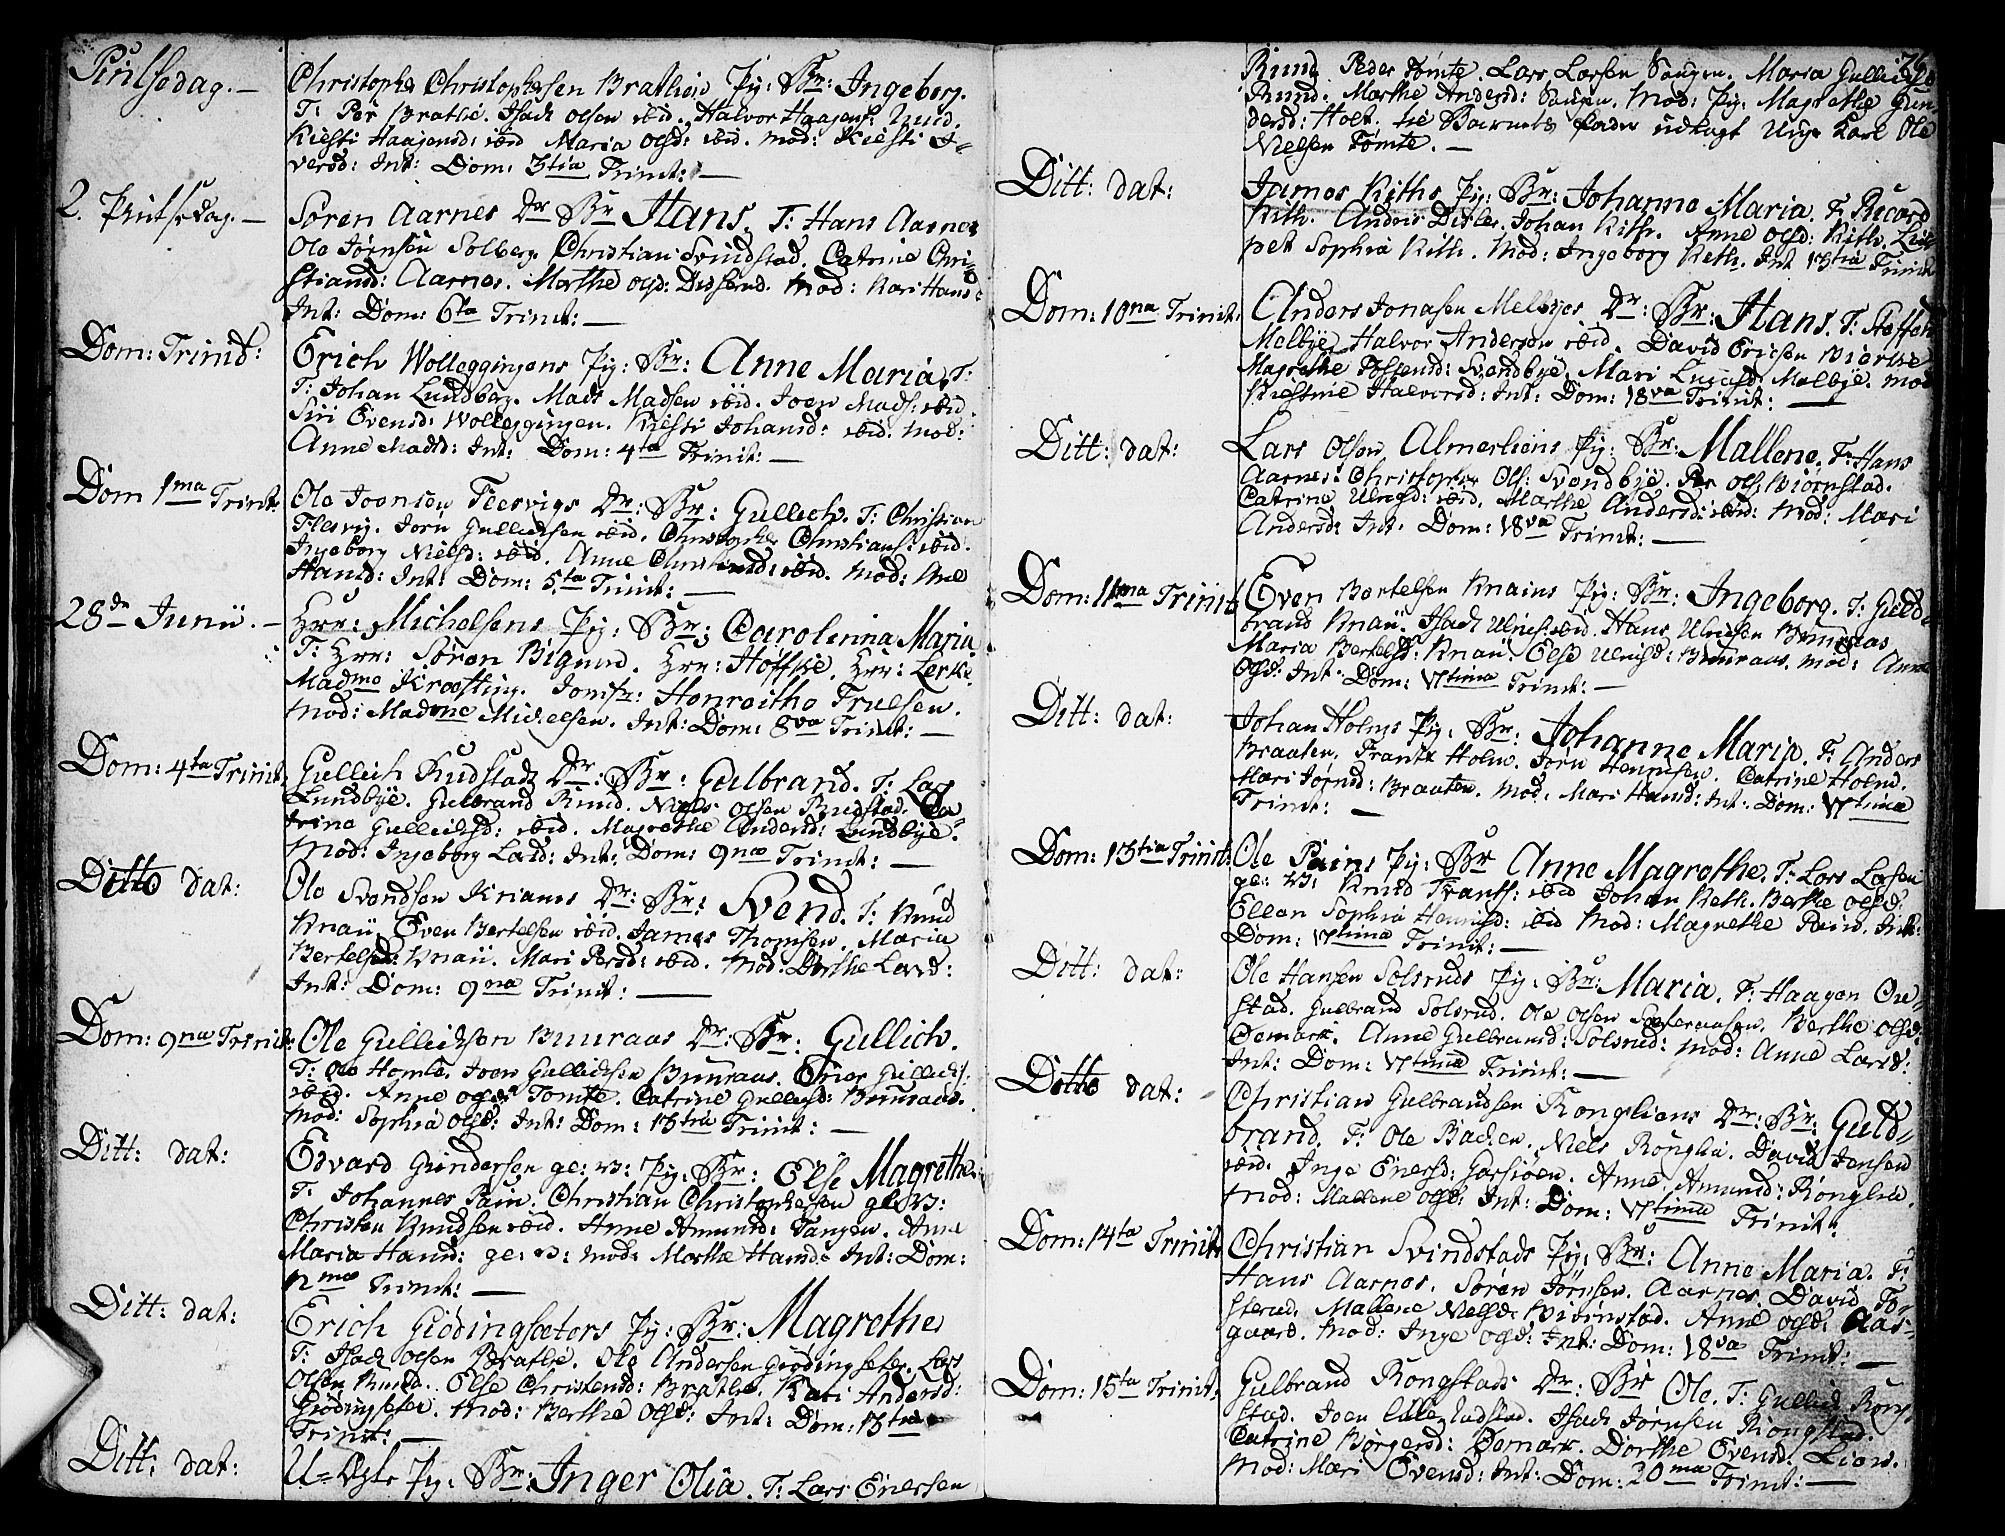 Pintsedag. —
Christopher Christophersen Brathie Pig: Br: Ingeborg.
T: Per Brathe. Isach Olsen ibid. Halvor Haagens: Ruud.
Kiesti Haagensd: ibid Maria Olsd: ibid. Mod: Kiesti I-
versd: Int: Dom: 3tia Trinit: —
2. Pintsedag. —
Sören Aarnes Dr Br Hans. T: Hans Aarnes
Ole Jörnsen Solberg. Christian Svindstad. Catrine Chri-
stiansd: Aarnes. Marthe Olsd: Mod: Kari Hansd:
Int: Dom: 6ta Trinit: —
Dom: Trinit:
Erich Wolleggingens Pig: Br: Anne Maria. T:
T: Johan Lundberg. Mads Madsen ibid. Joen Mads: ibid.
Siri Evensd: Wolleggingen. Kiesti Johansd: ibid. Mod:
Anne Madsd: Int: Dom: 4ta Trinit: —
Dom 1ma Trinit.
Ole Joensen Teervigs Dr: Br: Gullich. T: Christian
Jörn Gullichsen ibid. Christopher Christians: ibid.
Ingeborg Nielsd: ibid. Anne Christiansd: ibid. Mod: Anne
Hansd: Int: Dom: 5ta Trinit: —
28de Junii. —
Hrr: Michelsens Pig: Br: Carolinna Maria.
T: Hrr: Sören Bigum. Hrr: Höffke. Hrr: Lerke.
Madmo Kroosting. Jomfr: Henreitha Truelsen.
Mod: Madme Michelsen. Int: Dom: 8va Trinit: —
Dom: 4ta Trinit.
Gullich Rudstads Dr: Br: Gulbrand. T: Lars
Lundbÿe. Gulbrand Ruud. Niels Olsen Rudstad. Ca-
trine Gullichsd: ibid. Magrethe Andersd: Lundbÿe.
Mod: Ingeborg Larsd: Int: Dom: 9na Trinit: —
Ditto dat:
Ole Svendsen Knaus Dr: Br: Svend. T: Knud
Knaü. Even Bertelsen ibid. James Thomsen. Maria
Bertelsd: Knaü. Mari Persd: ibid. Mod: Dorthe Larsd:
Int: Dom: 9na Trinit: —
Dom: 9na Trinit:
Ole Gullichsen Buuraas Dr: Br: Gullich.
T: Ole Homle. Joen Gullichsen Buuraas. Gullichs:
ibid. Anne Olsd: Tomte. Catrine Gullichsd: Buuraas.
Mod: Sophia Olsd: Int: Dom: 13tia Trinit: —
Ditt: dat:
Edvard Gundersen ge: V: Pig: Br: Else Magrethe.
T: Johannes Pain. Christian Christophersen ge: V:
Christen Knudsen ibid. Anne Amunds: Tangen. Anne
Maria Hansd: ge: V: Mod: Marthe Hansd: Int: Dom:
12ma Trinit: —
Ditt: dat:
Erich Giödingsæters Pig: Br: Magrethe
T: Isach Olsen Brathe. Ole Andersen Giödingseter. Lars
Olsen Ruud. Else Christensd: Brathe. Kari Andersd:
Giödingseter. Mod: Berthe Olsd: Int: Dom: 13tia
Trinit: —
Ditt: dat:
U-Ægte Pig: Br: Inger Olia. T: Lars Enersen
76
Ruud. Peder Tomte. Lars Larsen Saugen. Maria Gullichsd
Ruud. Marthe Andersd: Saugen. Mod: Pig: Magrethe Gun-
dersd: Holt. til Barnets Fader udlagt Unge Karl Ole
Nielsen Tomte. —
Ditt: dat:
James Kiths Pig: Br: Johanne Maria. T: Ricard
Kith. Anders Johan Kith. Anne Olsd: Kith. Lis-
pet Sophia Kith. Mod: Ingeborg Keth. Int 13tia Trinit
Dom: 10na Trinit:
Anders Jonasen Melbÿes Dr: Br: Hans. T: Steffen
Melbÿe. Halvor Andersen ibid. David Ericsen Bierke
Magrethe Svendbÿe. Mari Melbÿe. Mod
Kirstine Halvorsd: Int: Dom: 18va Trinit: —
Ditt: dat:
Lars Olsen Almerliens Pig: Br: Mallene. T: Hans
Aarnes. Christopher Ols: Svendbÿe. Per Ols: Biörnstad.
Catrine Ulrigsd: ibid. Marthe Andersd: ibid: Mod: Mari
Andersd: Int. Dom: 18va Trinit: —
Dom: 11ma Trinit:
Even Bertelsen Knaus Pig: Br: Ingeborg. T: Guld-
brand Knaü. Isach Ulrics: ibid. Hans Ulricsen Buuraas
Maria Bertelsd: Knaü. Else Ulricsd: Buuraas. Mod: Anne
Olsd: Int: Dom: 17tima Trinit: —
Ditt: dat:
Johan Holms Pig: Br: Johanne Maria. T: Anders
Braaten. Frantz Holm. Jörn Henricsen. Catrine Holm.
Mari Jörnsd: Braaten. Mod: Mari Hansd: Int: Dom: 17tima
Trinit: —
Dom: 13tia Trinit:
Ole Pains Pig: Br Anne Magrethe. T: Lars Larsen
ge: V: Knud Frants: ibid Johan Keth. Berthe Olsd:
Ellen Sophia Henrigsd: ibid Mod: Magrethe Pain. Int:
Dom: 17tima Trinit: —
Ditt: dat:
Ole Hansen Solsruds Pig: Br: Maria. T: Haagen Ou-
stad. Gulbrand Solsrud. Ole Olsen Berthe Olsd:
Demark. Anne Gulbransd: Solsrud: Mod: Anne Larsd:
Int: Dom: 17tima Trinit: —
Ditto dat:
Christian Gulbrandsen Ronglians Dr: Br: Guld-
brand. T: Ole Bachen. Niels Ronglia. David Jensen
ibid. Inge Enersd: Garsiöen. Anne Amunds: Ronglia.
Mod: Mallene Olsd: Int: Dom: 17tima Trinit:
Dom: 14ta Trinit.
Christian Svindstads Pig: Br: Anne Maria. T:
Hans Aarnes. Sören Jörnsen. Aarnes. David To-
sterud. Mallene Nielsd: Biörnstad. Anne Olsd: Aas-
gaard. Mod: Inge Olsd: Int: Dom: 18va Trinit: —
Dom: 15ta Trinit.
Gulbrand Rongstads Dr: Br Ole. T: Gullich Rong-
stad. Joen Lille Rustad. Isach Jörnsen Rongstad.
Catrine Börgersd: Demark. Dorthe Evensd: Lien.
Mod: Mari Evensd: Int: Dom: 20ma Trinit: —